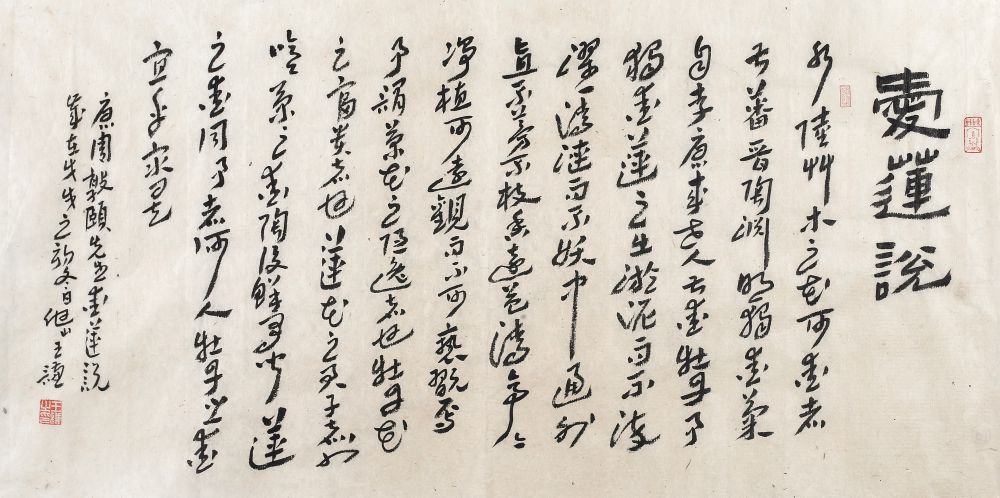 愛蓮說
水陸艸木之花可愛者
甚蕃晉陶淵明獨愛菊
自李唐来世人甚愛牡丹予
獨愛蓮之出淤泥而不染
濯清漣而不妖中通外
直不蔓不枝香遠益清亭々
淨植可遠觀而不可褻翫焉
予謂菊花之隱逸者也牡丹花
之富貴者也蓮花之君子者也
噫菊之愛陶後鮮有聞蓮
之愛同予者何人牡丹之愛
宜乎衆矣
周敦頤先生愛蓮説
歲在戊戌之初冬日 山王謙